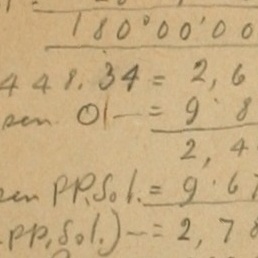 180°00'00
448.34 = 2,6
sen. 01 — = 9.8
2,4
sen PP,Sol. = 9.67
.PP,Sol.) — = 2,78